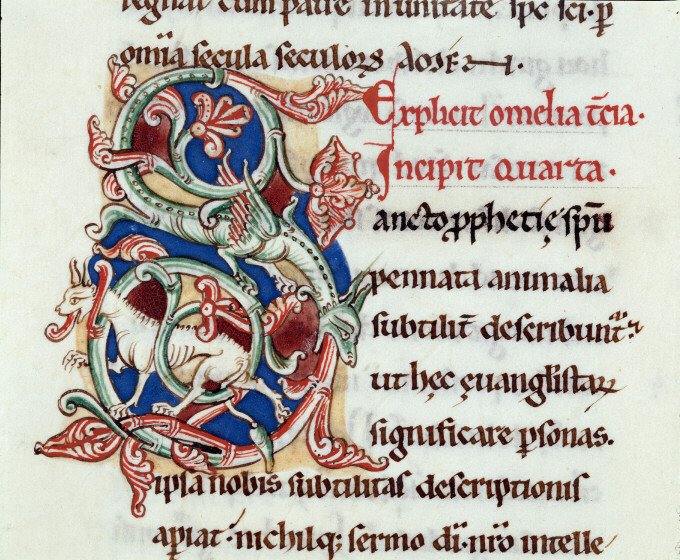 regnat cum patre in unitate sp̄c sc̄i·p
om̄ia secula seculorꝝ AᴍEN·
Explicit omelia t̄cia·
Incipit quarta·
Sancto ꝓphetię sp̄u
pennata animalia
subtilit̄ describunt᷑
ut hęc ęuanglistarꝝ
significare ꝑsonas.
ipsa nobis subtilitas descriptionis
apiat·nichilq; sermo dī·nr̄o intelle